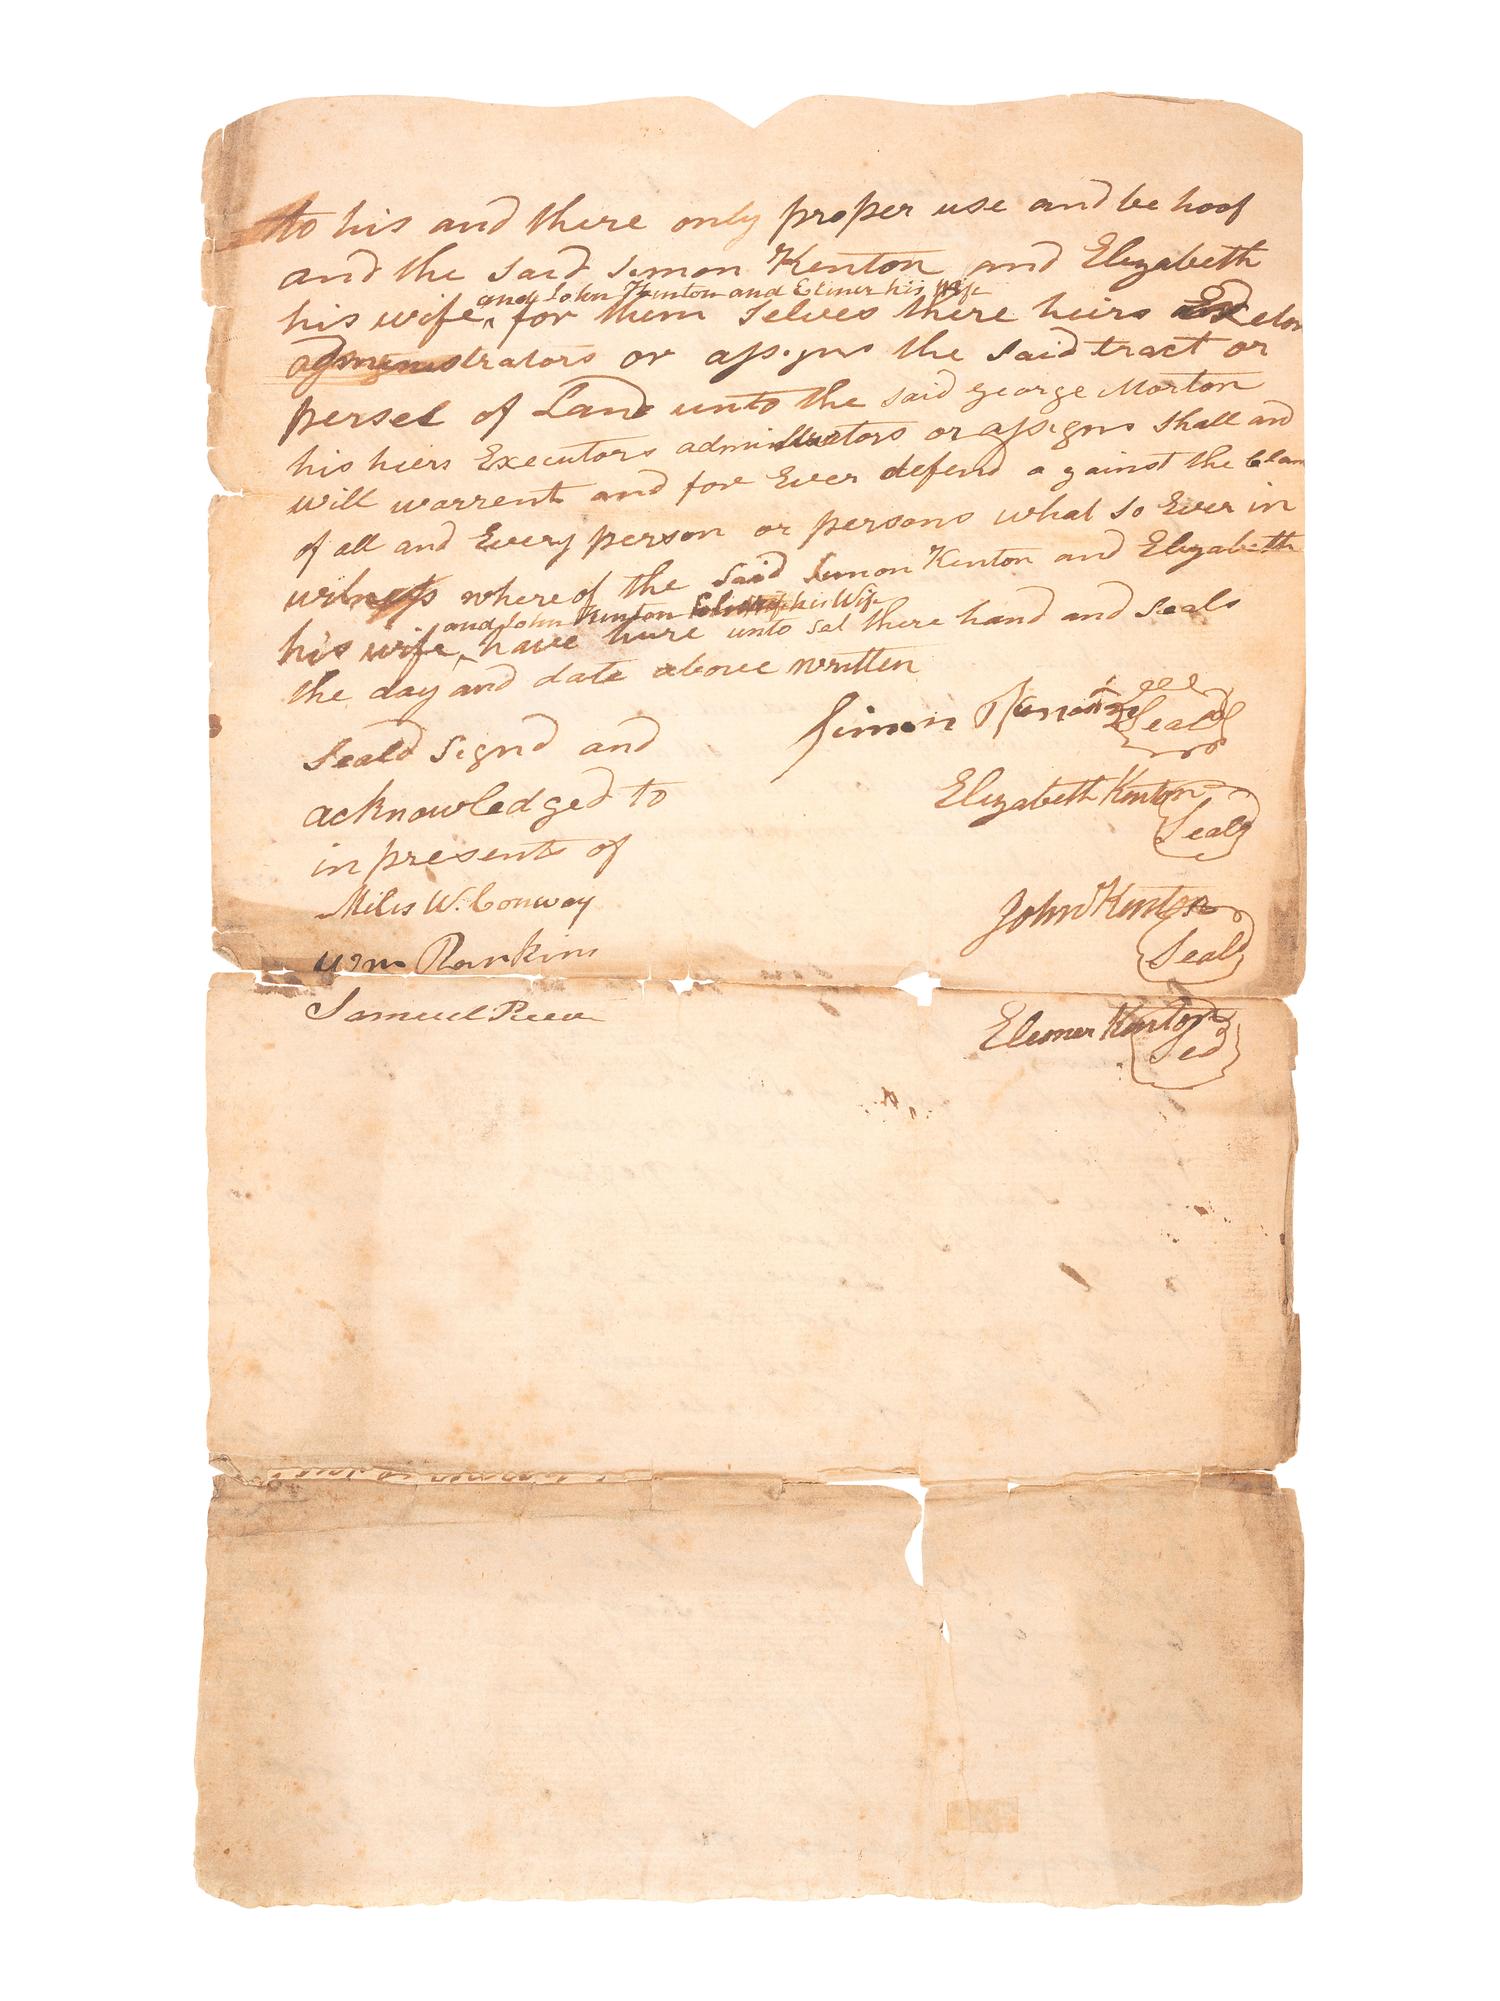 to his and there only proper use and be hoof
and the said Simon Kenton and Elizabeth
and John Kenton and Eliner his Wife
his wife ^ for them selves there heirs
administrators or assigns the said tract or
persel of Land unto the said george Morton
his hiers Executors administrators or assigns shall and
will warrent and for Ever defend a gainst the Clam
of all and Every person or persons what so Ever in
witness where of the said Simon Kenton and Elizabeth
and John Kenton his Wife
his wife ^ have here unto set there hand and seals
the day and date above written
Seald Signd and
acknowledged to
in presents of
Miles W. Conway
Wm Rankins
Samuel
Simon Kenton Seal
Elizabeth Kenton
Seal
John Kenton
Seal
Elenner Kenton